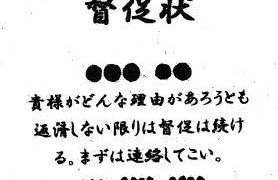 督促状
●●● ●●
貴様がどんな理由があろうとも
返済しない限りは督促は続け
る。まずは連絡してこい。